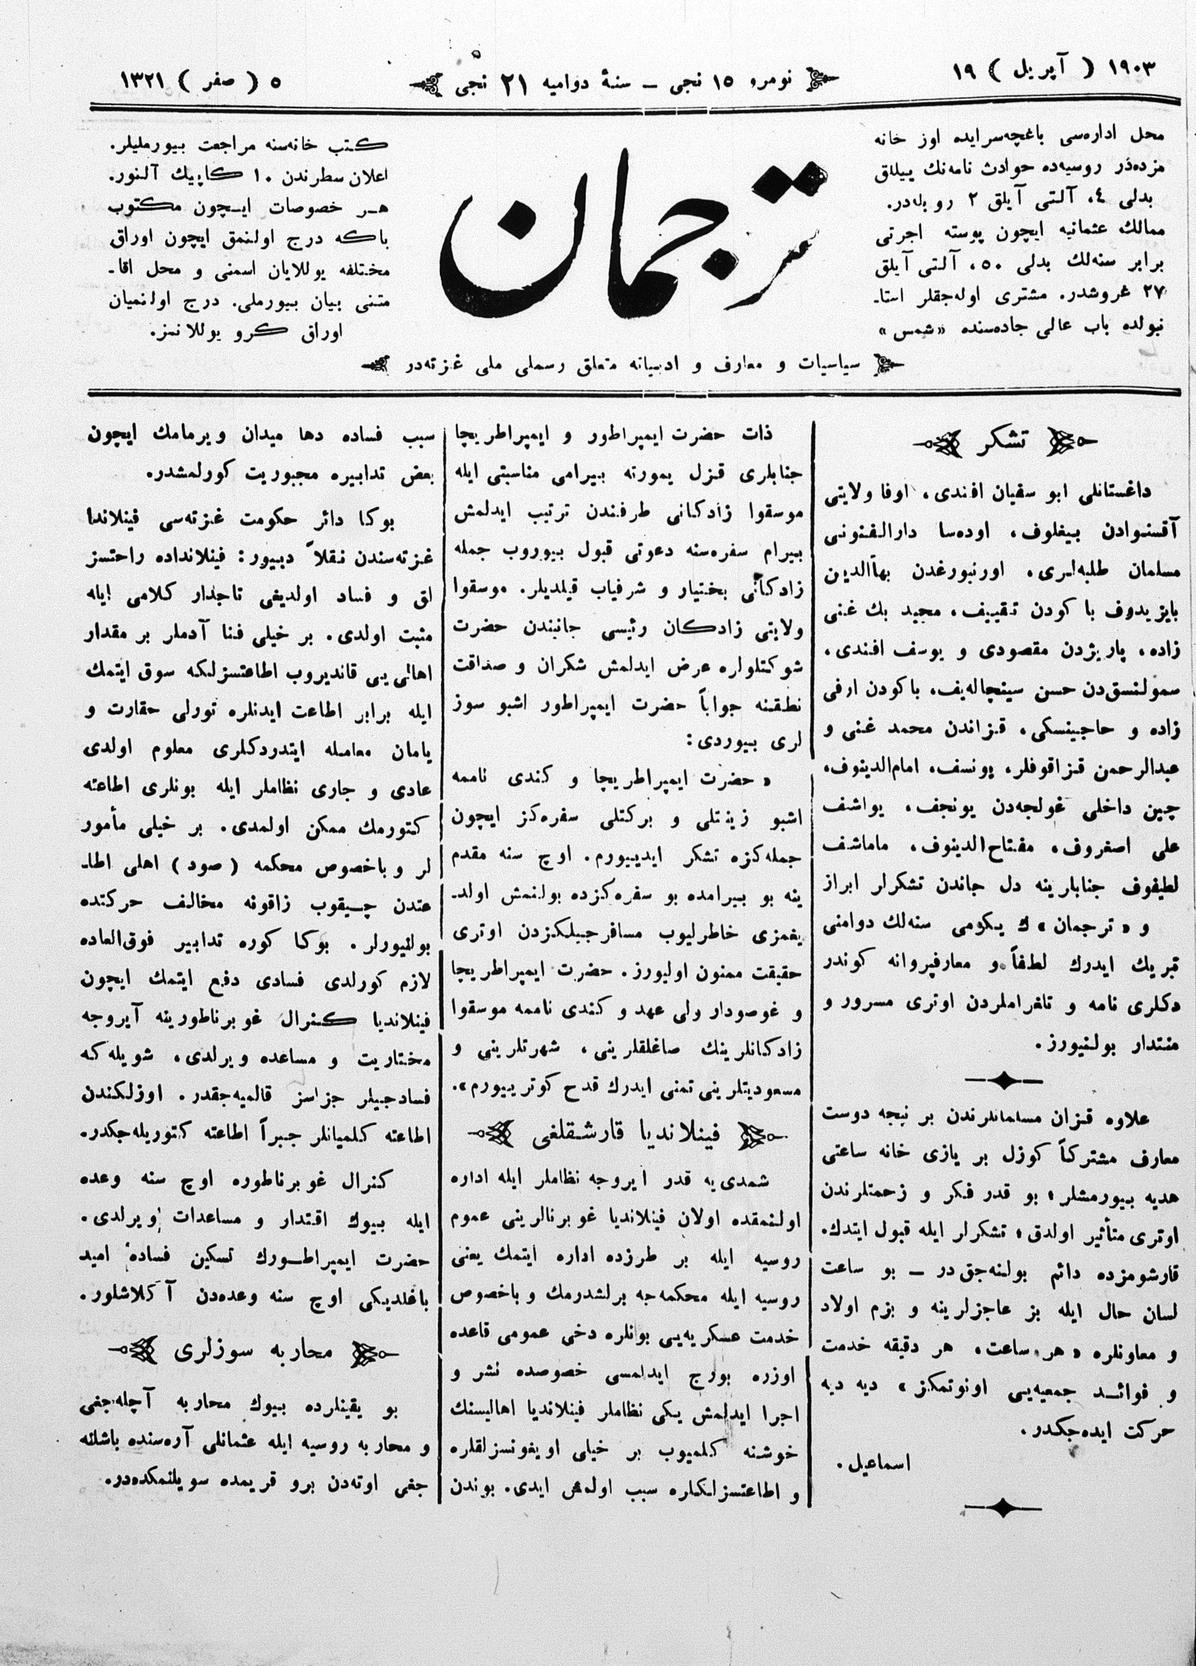 ١٩٠٣ ( آپریل ) ١٩
نومرو ١٥ نجی ـ سنهٔ دوامیه ٢١ نجی
٥ ( صفر ) ١٣٢١
محل ادارەسی باغچەسرایدە اوز خانە
مزدەدر روسیەدە حوادث نامەنك ییللق
بدلی ٤، آلتی آیلق ٢ روبلەدر.
ممالك عثمانیە ایچون پوستە اجرتی
برابر سنەلك بدلی ٥٠، آلتی آیلق
٢٧ غروشدر. مشتری اولەجقلر استا۔
نبولدە باب عالی جادەسندە «شمس»
ترجمان
كتب خانەسنە مراجعت بیورملیلر.
اعلان سطرندن ١٠ كاپیك آلنور.
هر خصوصات ایچون مكتوب
باكە درج اولنمق ایچون اوراق
مختلفە یوللایان اسمنی و محل اقا۔
متنی بیان بیورملی. درج اولنمیان
اوراق كرو یوللانمز.
سیاسیات و معارف و ادبیاتە متعلق رسملی ملی غزتەدر
تشكر
داغستانلی ابو سفیان افندی، اوفا ولایتی
آقسنوادن بیغلوف، اودەسا دارالفنونی
مسلمان طلبەلری، اورنبورغدن بهآالدین
بایزیدوف باكودن تقییف، مجید بك غنی
زادە، پاریژدن مقصودی و یوسف افندی،
سمولنسقدن حسن سینچالەیف، باكودن ارفی
زادە و حاجینسكی، قزاندن محمد غنی و
عبدالرحمن قزاقوفلر، یونسف، امام‌الدینوف،
چین داخلی غولجەدن یونجف، یواشف
علی اصغروف، مفتاح‌الدینوف، ماماشف
لطیفوف جنابارینە دل جاندن تشكرلر ابراز
و «ترجمان» ك یكرمی سنەلك دوامنی
تبریك ایدرك لطفاً و معارفپروانە كوندر
دكلری نامە و تلغراملردن اوتری مسرور و
منتدار بولنیورز.
علاوە قزان مسلمانلرندن بر نیجە دوست
معارف مشتركاً كوزل بر یازی خانە ساعتی
هدیە بیورمشلر؛ بو قدر فكر و زحمتلرندن
اوتری متأثیر اولدق؛ تشكرلر ایلە قبول ایتدك.
قارشومزدە دائم بولنەجق در ـ بو ساعت
لسان حال ایلە بز عاجزلرینە و بزم اولاد
و معاونلرە «هر ساعت، هر دقیقە خدمت
و فوائد جمعیەیی اونوتمكز» دیە دیە
حركت ایدەجكدر.
اسماعیل.
ذات حضرت ایمپراطور و ایمپراطریچا
جنابلری قزل یمورتە بیرامی مناسبتی ایلە
موسقوا زادكانی طرفندن ترتیب ایدلمش
بیرام سفرەسنە دعوتی قبول بیوروب جملە
زادكانی بختیار و شرفیاب قیلدیلر. موسقوا
ولایتی زادكان رئیسی جانبندن حضرت
شوكتلوارە عرض ایدلمش شكران و صداقت
نطقنە جواباً حضرت ایمپراطور اشبو سوز
لری بیوردی:
« حضرت ایمپراطریچا و كندی ناممە
اشبو زینتلی و بركتلی سفرەكز ایچون
جملەكزە تشكر ایدیبورم. اوچ سنە مقدم
ینە بو بیرامدە بو سفرەكزدە بولنمش اولد۔
یغمزی خاطرلیوب مسافرجیلكزدن اوتری
حقیقت ممنون اولیورز. حضرت ایمپراطریچا
و غوصودار ولی عهد و كندی ناممە موسقوا
زادكانلرینك صاغلقلرینی، شهرتلرینی و
مسعودیتلرینی تمنی ایدرك قدح كوتریبورم».
فینلاندیا قارشقلغی
شمدی یە قدر ایروجە نظاملر ایلە ادارە
اولنمقدە اولان فینلاندیا غوبرنالرینی عموم
روسیە ایلە بر طرزدە ادارە ایتمك یعنی
روسیە ایلە محكمەجە برلشدرمك و باخصوص
خدمت عسكریەیی بونلرە دخی عمومی قاعدە
اوزرە بورج ایدلمسی خصوصدە نشر و
اجرا ایدلمش یكی نظاملر فینلاندیا اهالیسنك
خوشنە كلمیوب بر خیلی اویغونسزلقلرە
و اطاعتسزلكلرە سبب اولمش ایدی. بوندن
سبب فسادە دها میدان ویرمامك ایچون
بعض تدابیرە مجبوریت كورلمشدر.
بوكا دائر حكومت غزتەسی فینلاندا
غزتەسندن نقلاً دیبور: فینلاندادە راحتسز
لق و فساد اولدیغی تاجدار كلامی ایلە
مثبت اولدی. بر خیلی فنا آدملر بر مقدار
اهالی یی قاندیروب اطاعتسزلكە سوق ایتمك
ایلە برابر اطاعت ایدنلرە تورلی حقارت و
یامان معاملە ایتدردكلری معلوم اولدی
عادی و جاری نظاملر ایلە بونلری اطاعتە
كتورمك ممكن اولمدی. بر خیلی مأمور
لر و باخصوص محكمە ( صود ) اهلی اطا۔
عتدن چیقوب زاقونە مخالف حركتدە
بولنیورلر. بوكا كورە تدابیر فوق‌العادە
لازم كورلدی فسادی دفع ایتمك ایچون
فینلاندیا كنرال غوبرناطورینە آیروجە
مختاریت و مساعدە ویرلدی، شویلەكە
فسادجیلر جزاسز قالمیەجقدر. اوزلكندن
اطاعتە كلمیانلر جبراً اطاعتە كتوریلەجكدر.
كنرال غوبرناطورە اوچ سنە وعدە
ایلە بیوك اقتدار و مساعدات ویرلدی.
حضرت ایمپراطورك تسكین فسادە امید
باغلدیكی اوچ سنە وعدەدن آكلاشلور.
محاربە سوزلری
بو یقینلردە بیوك محاربە آچلەجغی
و محاربە روسیە ایلە عثمانلی آرەسندە باشلنە
جغی اوتەدن برو قریمدە سویلنمكدەدر.